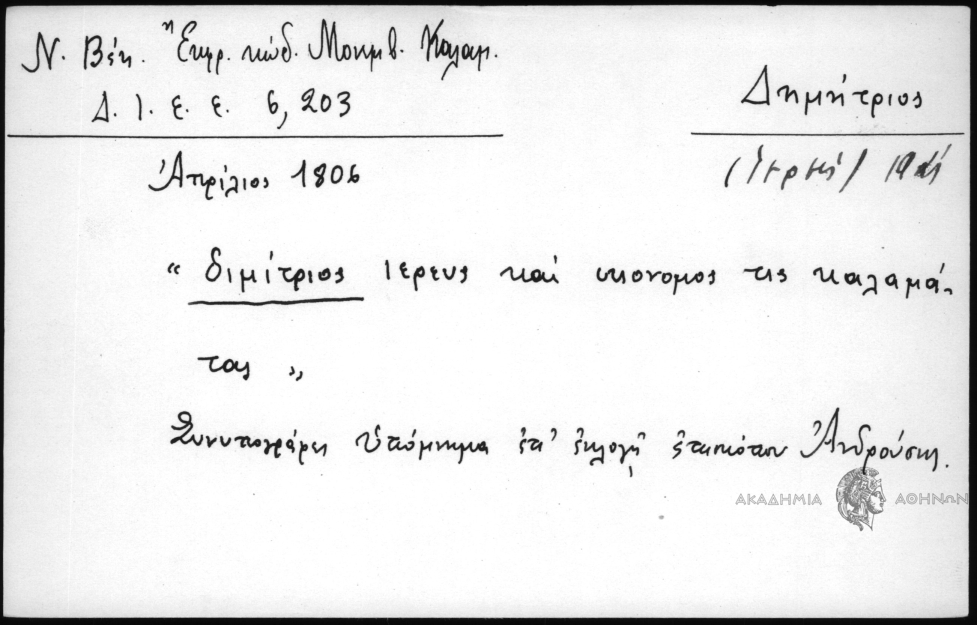 Ν. Βέη. Ἔκφρ. κώδ. Μονεμβ. Καλαμ.
Δ. Ι. Ε. Ε. 6, 203
Δημήτριος
(Ἱερεύς)
Ἀπρίλιος 1806
“ διμίτριος ιερευς και οικονομος τις καλαμά-
τας „
Συνυπογράφει ὑπόμνημα ἐπ' ἐκλογῇ ἐπισκόπου Ἀνδρούσης.
ΑΚΑΔΗΜΙΑ ΑΘΗΝΩΝ